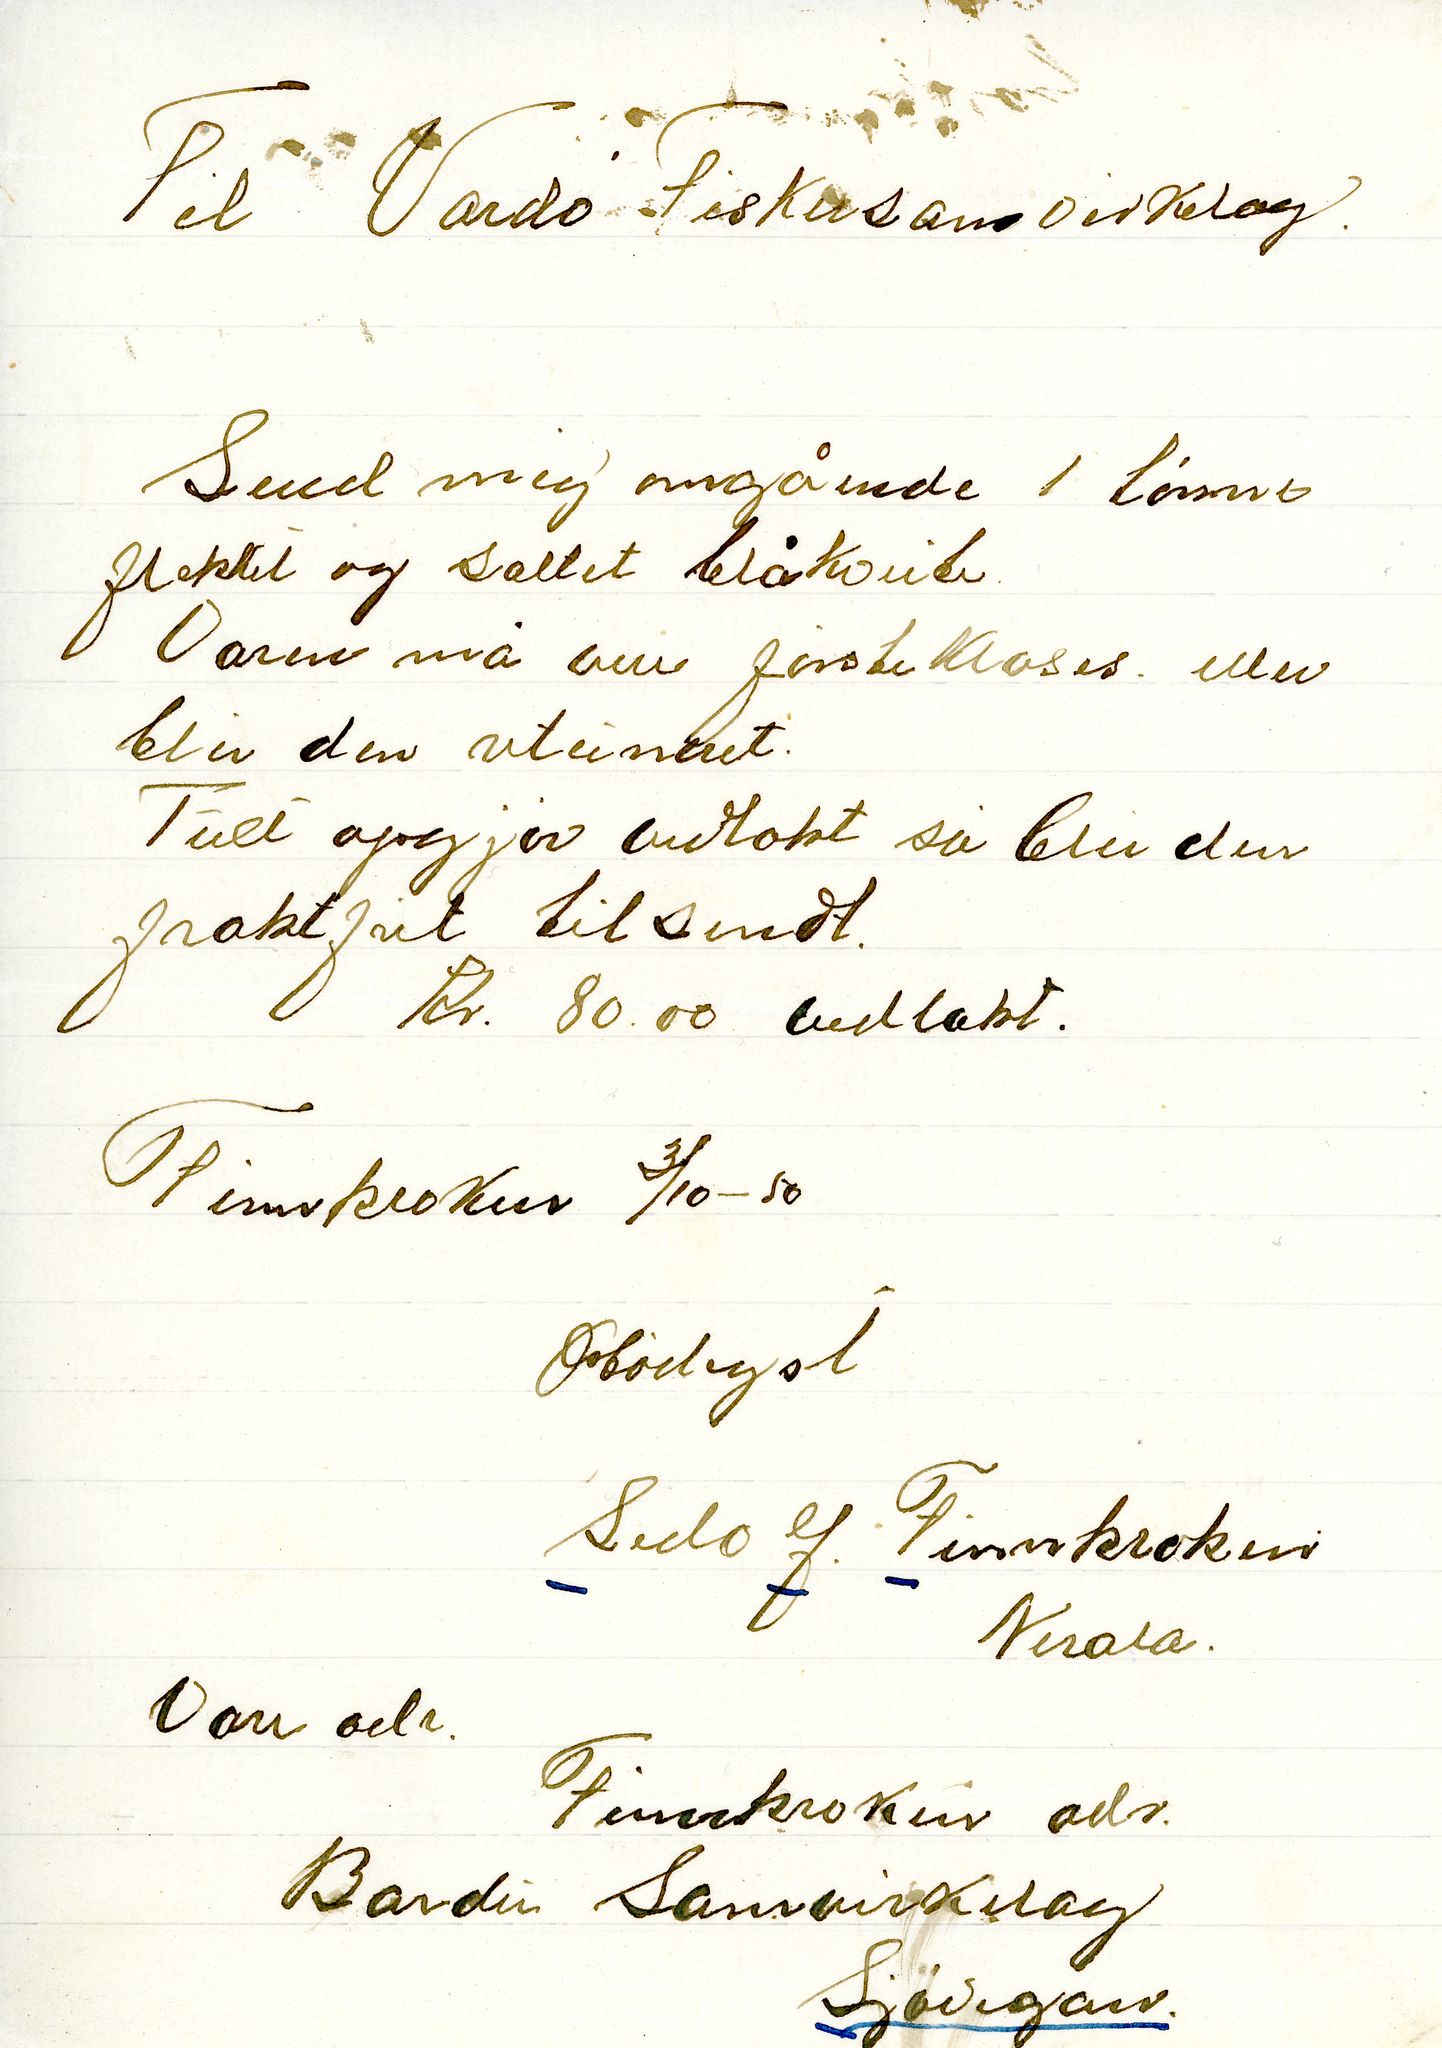 Til Vardö Fiskersamvirkelag.
Send mig omgående 1 tönne
flekket og saltet blåkveite.
Varen må vere försteklasses. eller
blir den returneret.
Fult opgjör vedlakt så blir den
fraktfrit tilsendt.
Kr. 80.00 vedlakt.
Finnkroken 3/10-50
Ærbödigst
Finnkroken
Vare adr.
Finnkroken adr.
Bardu Samvirkelag
Sjövegan.